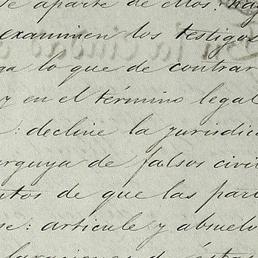 se aparte de ellos: hag
examinen los testigos
ga lo que de contrar
y en el término legal
: decline la jurisdicc
arguya de falsos civil
ntos de que las par
se: articule y absuelv